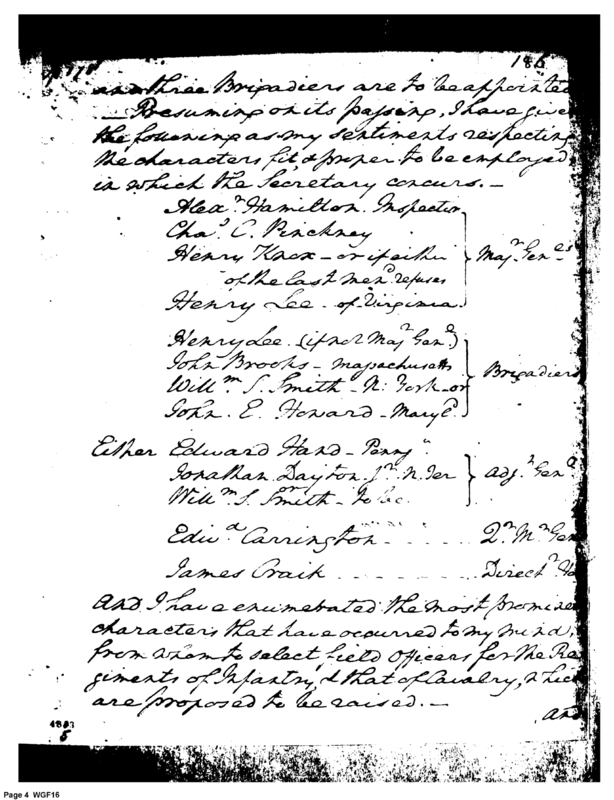 186
and three Brigadiers are to be appointed
Presuming on its passing, I have give
the following as my sentiments respecting
the characters fit, & proper to be employed
in which the Secretary concurs. —
Alexr Hamilton. Inspector
Chas C. Pinckney
Henry Knox - or if either
of the last mend refuses
Henry Lee - of Virginia
Majr Genls
Henry Lee (if not Majr Genl)
John Brooks - Massachusetts
Willm S. Smith - N: York - or
John E. Howard - Maryld
Brigadiers
Either Edward Hand - Pennya
Jonathan Dayton Jr N. Jer
Willm S. Smith - to be
Adjt Genl
Edwd Carrington - . . . . . 2r Mr Gen
James Craik . . . . . Directr Ho
And I have enumerated the most promine
characters that have occurred to my mind,
from whom to select field Officers for the Re
giments of Infantry, & that of Cavalry, which
are proposed to be raised. —
and
5
Page 4 WGF16